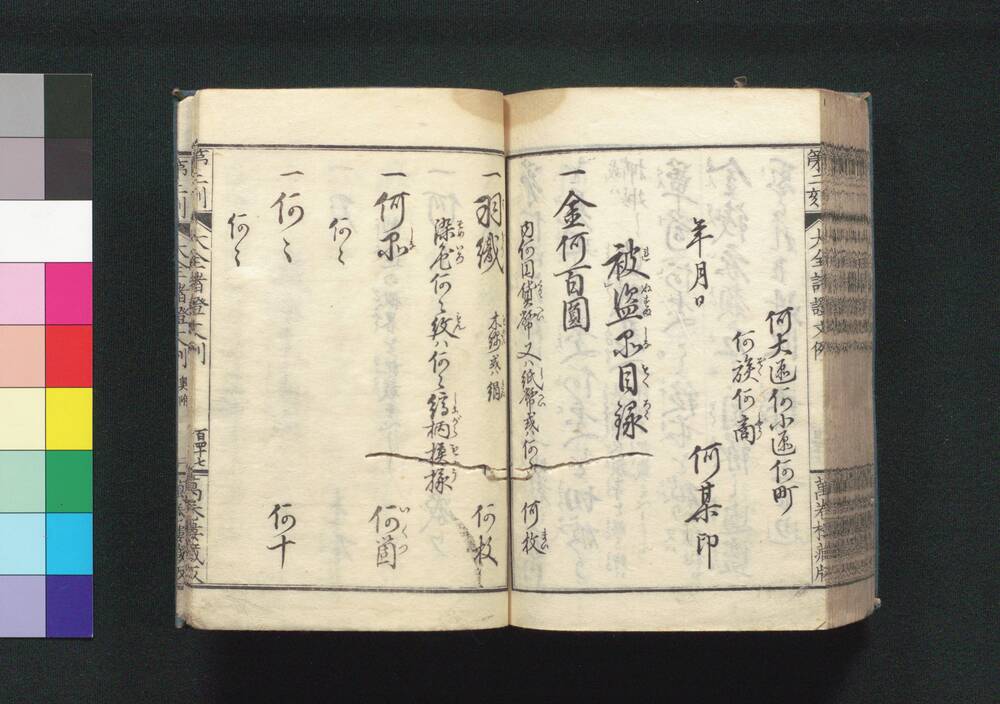 第二刻
大全諸證文例
年月日
何大區何小區何町
何族何商
何某印
被盗品目録
一金何百圓
内何円貨幣又ハ紙幣或ハ何々 何枚
一羽織 木綿或ハ絹 何枚
染色何々紋ハ何々縞柄模様
一何品 何箇
何々
一何々 何十
何々
百四十七